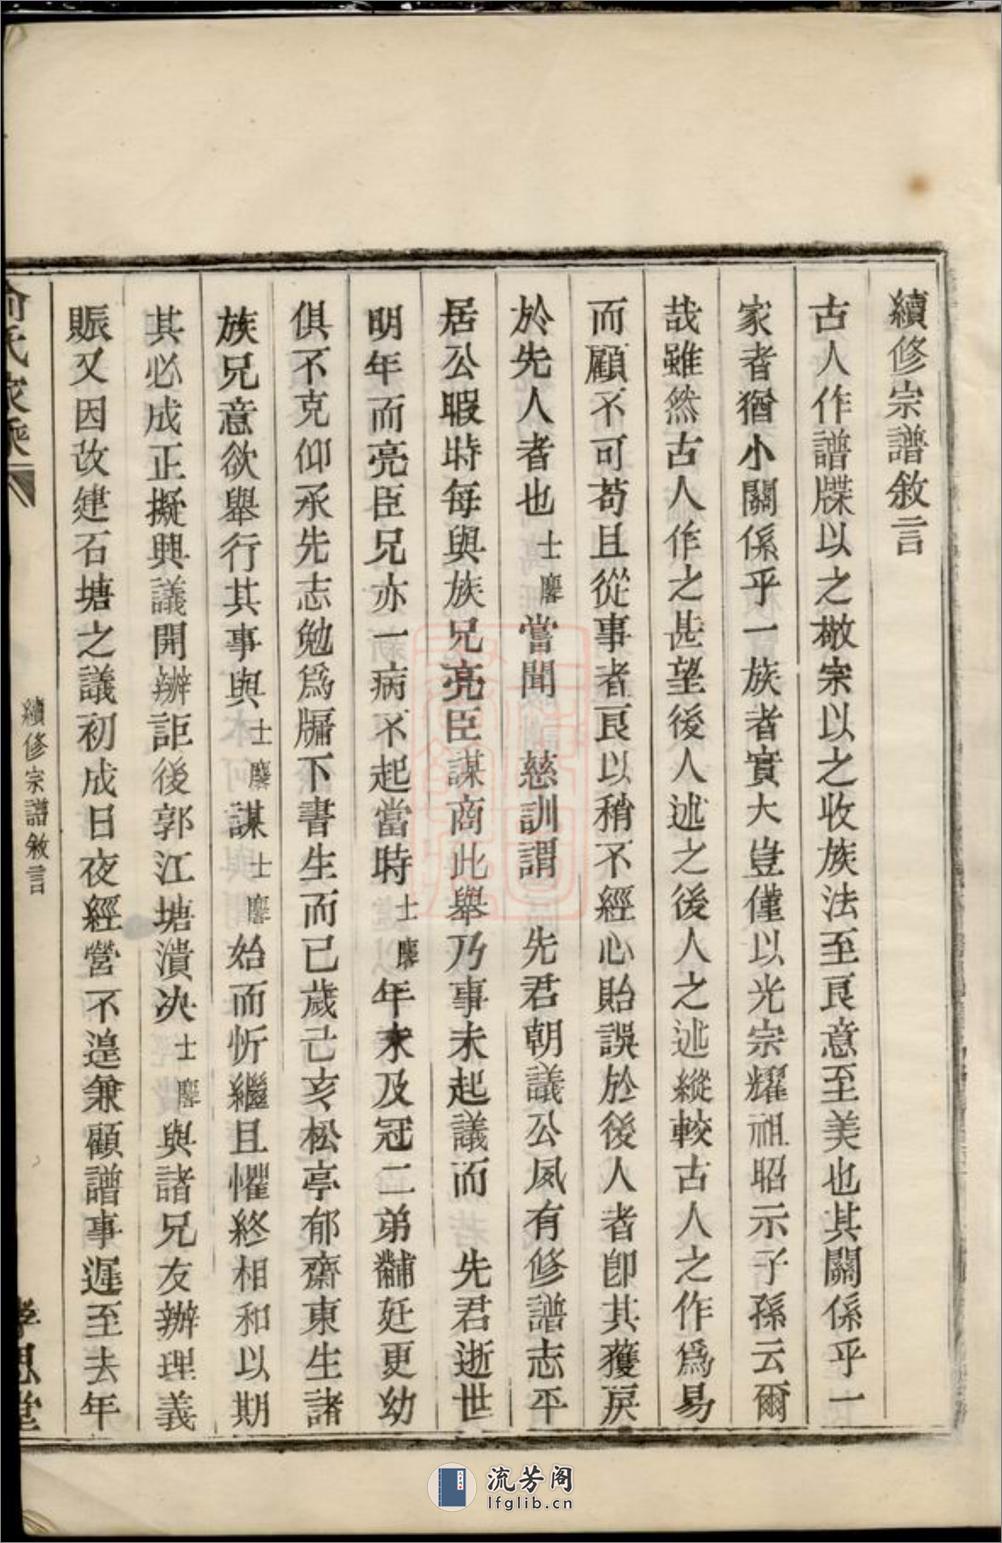 續修宗譜敘言
古人作譜牒以之敬宗以之收族法至良意至美也其關係乎一
家者猶小關係乎一族者實大豈僅以光宗耀祖昭示子孫云爾
哉雖然古人作之甚望後人述之後人之述縱較古人之作爲易
而顧不可苟且從事者良以稍不經心貽誤於後人者卽其獲戾
於先人者也士麐嘗聞 慈訓謂 先君朝議公夙有修譜志平
居公暇時每與族兄亮臣謀商此舉乃事未起議而 先君逝世
明年而亮臣兄亦一病不起當時士麐年未及冠二弟黼廷更幼
俱不克仰承先志勉爲牖下書生而已歲己亥松亭郁齋東生諸
族兄意欲舉行其事與士麐謀士麐始而忻繼且懼終相和以期
其必成正擬興議開辦詎後郭江塘潰決士麐與諸兄友辦理義
賑又因改建石塘之議初成日夜經營不遑兼顧譜事遲至去年
氏家乘
續修宗譜敘言
孝思堂
流芳阁
lfglib.cn